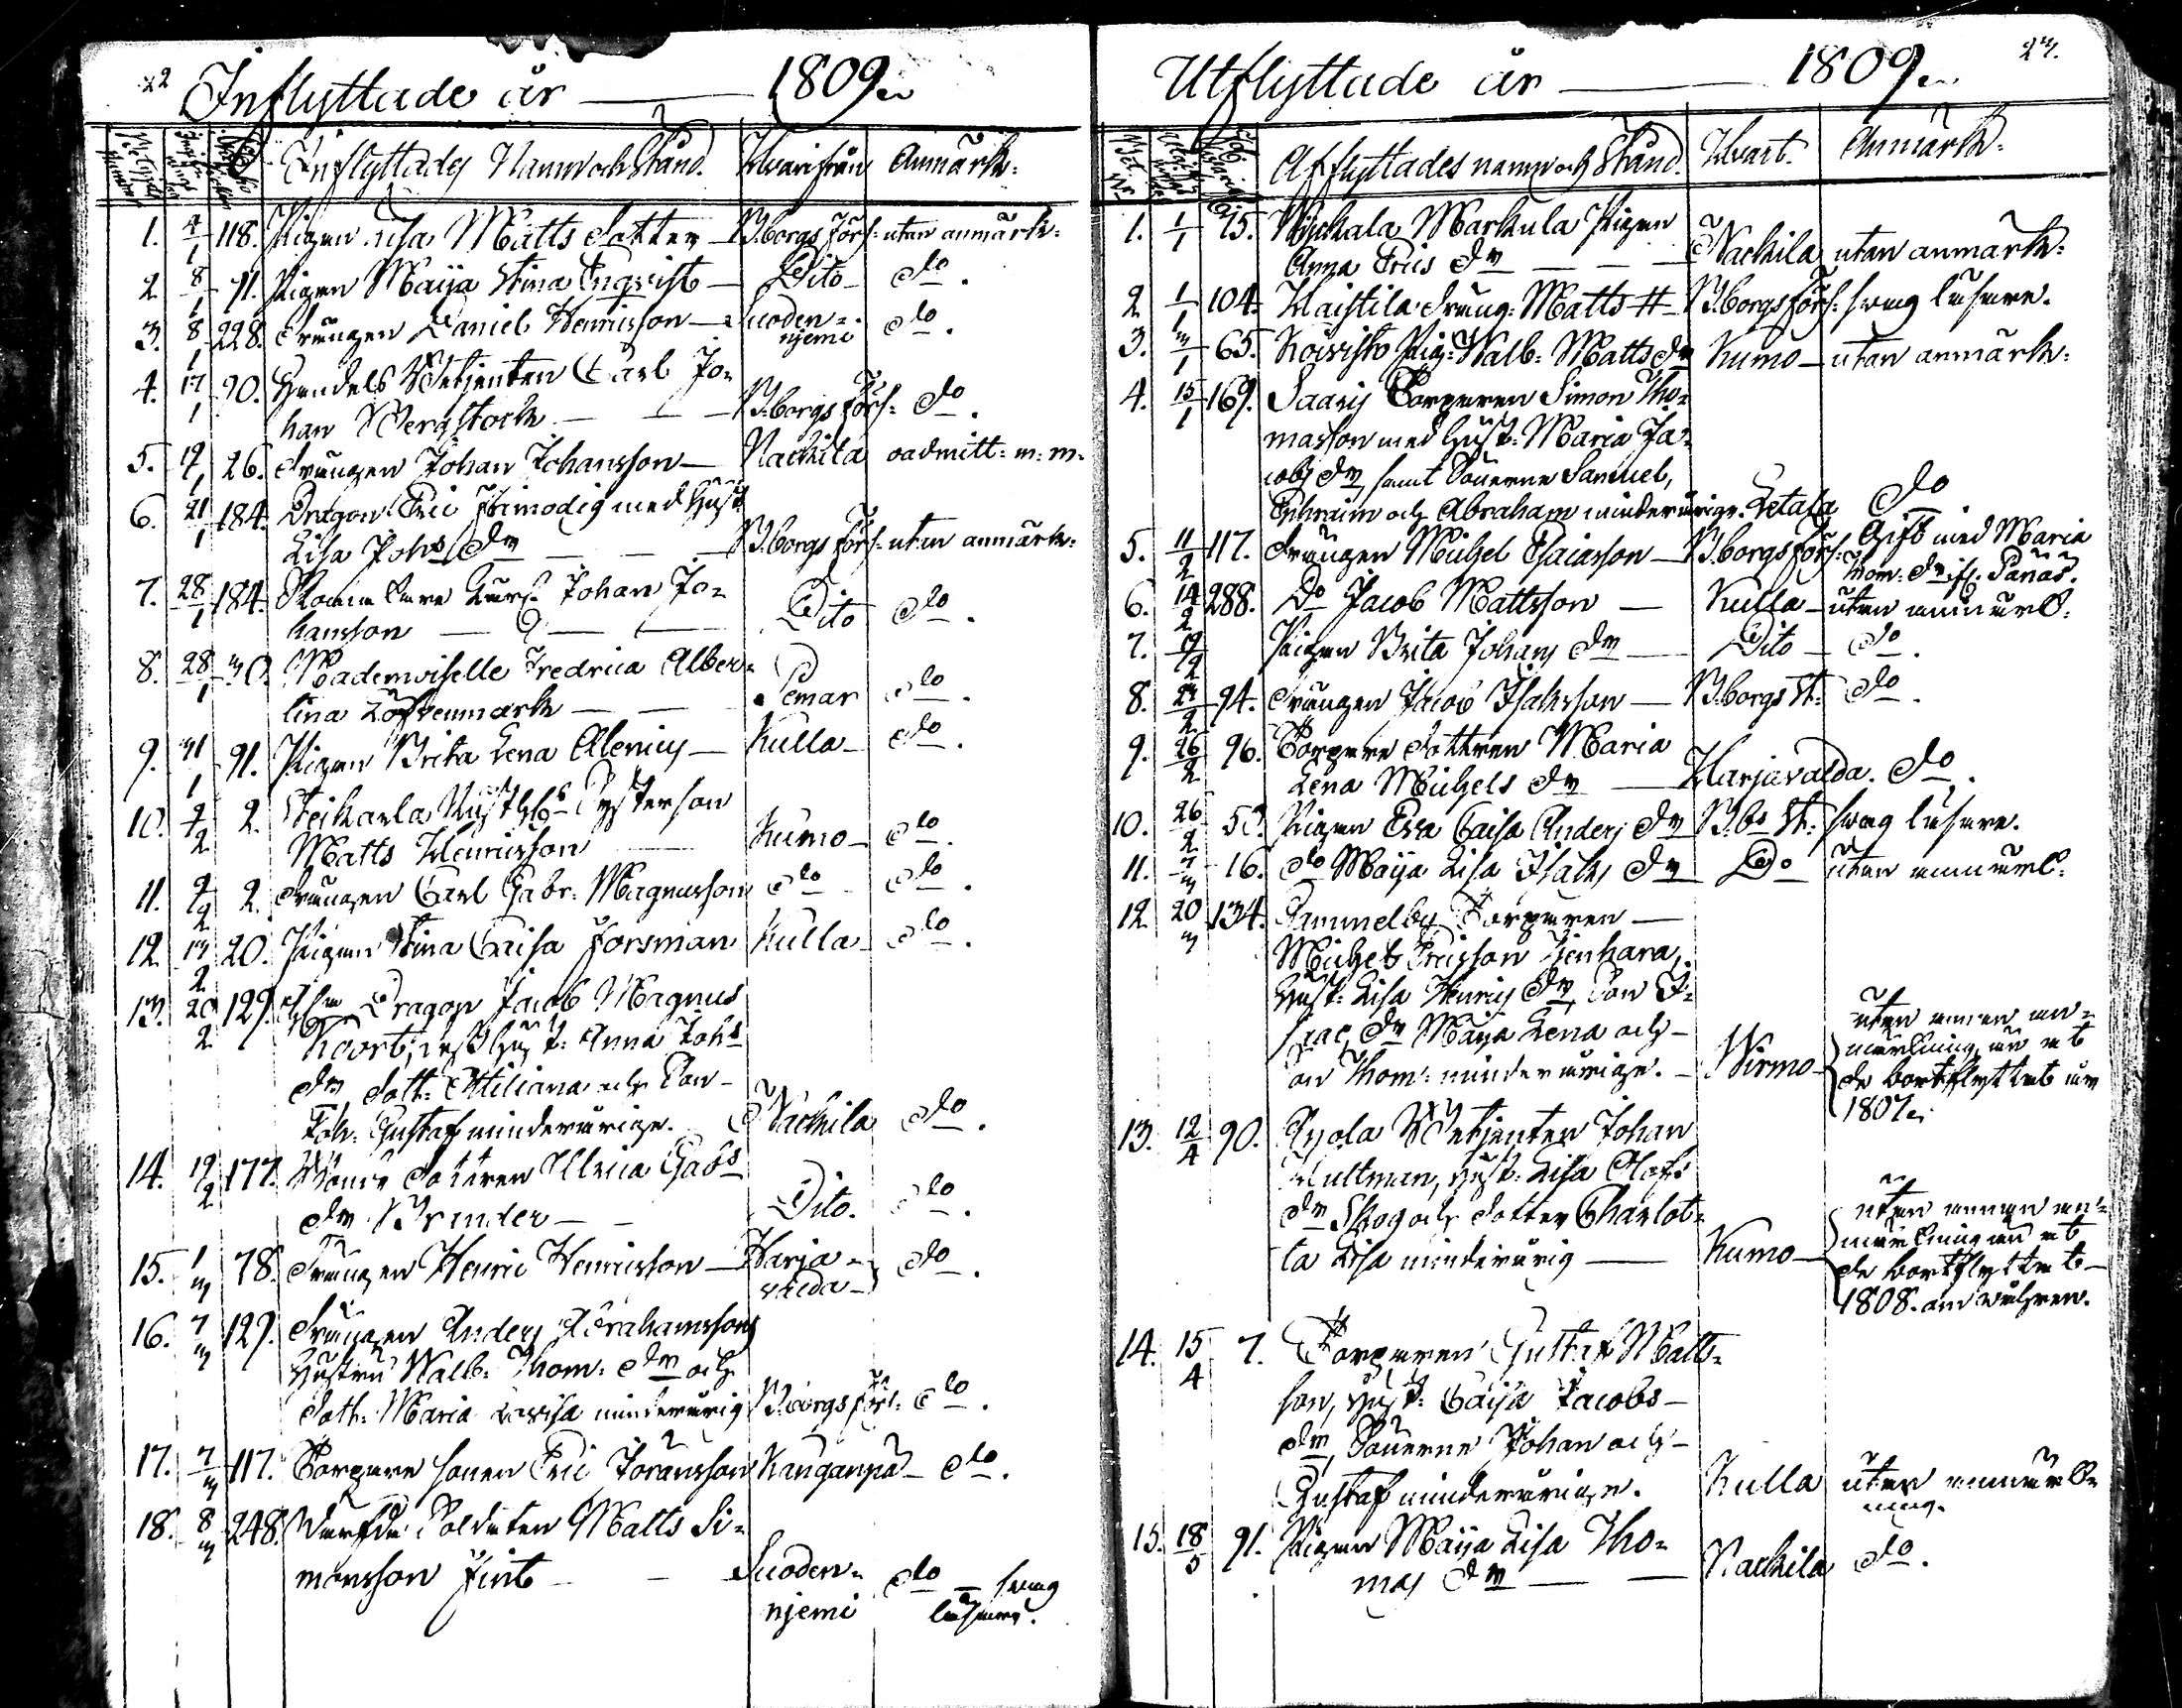 22
Inflyttade år — 1809.
Inflyttades Namn och Stånd. Hvarifrån Anmärk:
1. 4/1 118. Pigan Lisa Matts dotter — B:borgs förs: utan anmärk:
2. 8/1 71. Pigan Maija Stina Enqvist — Dito — do.
3. 8/1 228. Drängen Daniel Henricsson — Suoden=
niemi do.
4. 17/1 90. Handels Betjenten Carl Jo=
han Bergstock — B:borgs förs: do.
5. 19/1 26. Drängen Johan Johansson — Nackila oadmitt: m: m.
6. 21/1 184. Dragon Eric Frimodig med Hust
Lisa Johs dr — B:borgs förs: utan anmärk:
7. 28/1 184. Johan Jo=
hansson — Dito do.
8. 28/1 30. Mademoiselle Fredrica Alber=
tina Löfvenmark — Pemar do.
9. 31/1 91. Pigan Brita Lena Alenius — Kulla — do.
10. 4/2 2. Peikarla Rusth: Systerson
Matts Henricsson — Kumo — do.
11. 9/2 2. Drängen Carl Gabr: Magnusson do do.
12. 13/2 20. Pigan Stina Caisa Forsman Kulla — do.
13. 20/2 129. Dragon Jacob Magnus
Koort, Hust: Anna Johs
dr, dott: Ottiliana och Son
Joh: Gustaf minderårige. Nackila do.
14. 19/2 177. Bonde dottren Ulrica Gabs
dr Brander — Dito. do.
15. 1/3 78. Drängen Henric Henricsson — Harja=
valda — do.
16. 7/3 129. Drängen Anders Abrahamsson
Hustru Walb: Thom: dr och
dott: Maria Lovisa minderårig B:borgs förs: do.
17. 7/3 117. Torpare sonen Eric Joransson Kanganpä — do.
18. 8/3 248. Soldaten Matts Si=
monsson Fint — Suoden=
niemi do — svag
läsare.
23.
Utflyttade år — 1809.
Afflyttades namn och Stånd. Hvart. Anmärk:
1. 1/1 75. Markula Pigan
Anna Erics dr — Nackila utan anmärk:
2. 1/1 104. Haistila Dräng: Matts H — B:borgs förs: svag läsare.
3. 3/1 65. Koivisto Pig: Walb: Matts dr Kumo — utan anmärk:
4. 15/1 169. Saaris Torparen Simon Tho=
masson med Hust: Maria Ja=
cobs dr, samt Sönerne Samuel,
Ephraim och Abraham minderårige. Letala do
5. 11/2 117. Drängen Michel Esaiasson — B:borgs förs: Gift med Maria
Thom: dr
6. 14/2 288. Do Jacob Mattsson — Kulla — utan anmärk:
7. 19/2 Pigan Brita Johans dr — Dito — do.
8. 23/2 94. Drängen Jacob Isaksson — B:borgs St: do.
9. 26/2 96. Torpare dottren Maria
Lena Michels dr — Harjavalda. do.
10. 26/2 53. Pigan Eva Caisa Anders dr B:bs St: svag läsare.
11. 7/3 16. do Maija Lisa Isaks dr Do utan anmärk:
12. 20/3 134. Gammelby Torparen —
Michel Ericsson
Hust: Lisa Henrics dr, Son I=
sac, dr Maija Lena och
Son Thom: minderårige. — Wirmo — utan annan an=
märkning än at
de bortflyttat år
1807.
13. 12/4 90. Anola Betjenten Johan
Hultman, Hust: Lisa Olofs
dr Skog och dotter Charlot=
ta Lisa minderårig — Kumo — utan annan an=
märkning än at
de bortflyttat —
1808.
14. 15/4 7. Torparen Gustaf Matts=
son, Hust: Caisa Jacobs —
dr, Sönerne Johan och —
Gustaf minderårige. Kulla utan anmärk=
ning.
15. 18/5 91. Pigan Maija Lisa Tho=
mas dr — Nackila do.